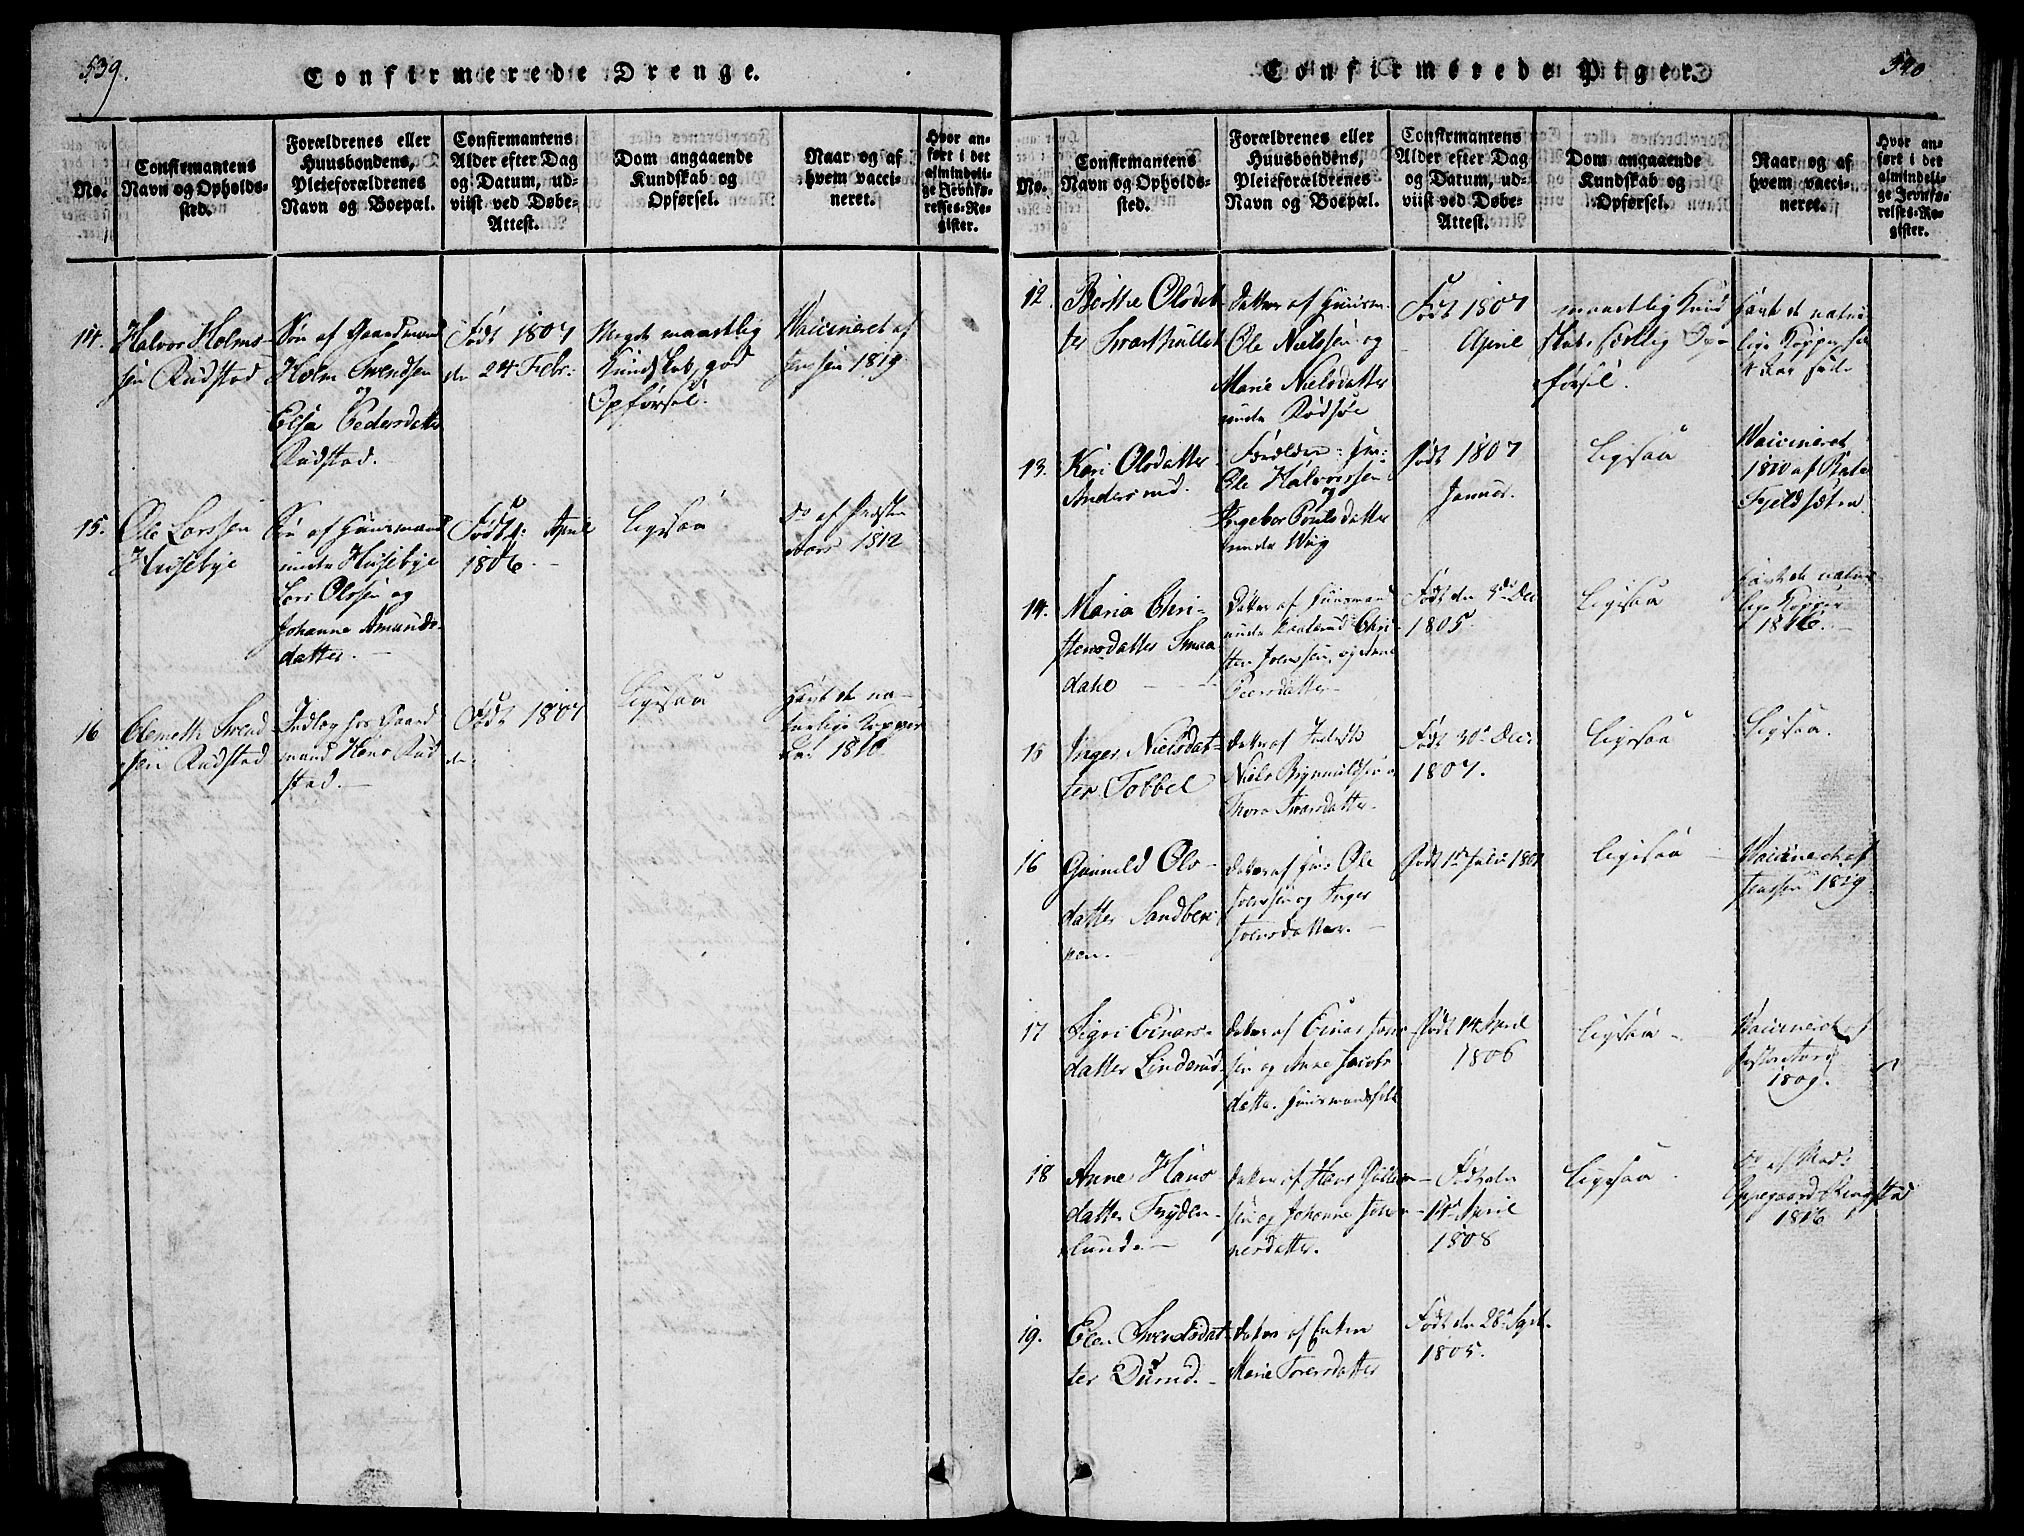 539.
Confirmerede Drenge.
No.
Confirmantens
Navn og Opholds-
sted.
Forældrenes eller
Huusbondens,
Pleieforældrenes
Navn og Boepæl.
Confirmantens
Alder efter Dag
og Datum, ud-
viist ved Døbe-
Attest.
Dom angaaende
Kundskab og
Opførsel.
Naar og af
hvem vacci-
neret.
Hvor an-
ført i det
almindeli-
ge Jevnfø-
relses-Re-
gister.
14.
Halvor Holms-
sen Rudstad
Søn af Gaardmand
Holm Svendsen
og
Elsa Pedersdatter
Rudstad.
Født 1807
d. 24 Febr.
Meget maadelig
Kundskab, god
Opførsel.
Vaccineret af
Jensen 1819
15.
Ole Larssen
Husebye
Søn af Huusmand
under Husebye
Lars Olssen og
Johanne Amunds-
datter.
Født April
1806.
ligesaa
do af Præsten
1812
16
Clemeth Svend
sen Rudstad
hos Gaard
mand Hans Rud
stad.
Født 1807
d.
ligesaa
havt de na-
turlige Kopper
1810
540
Confirmerede Piger.
No.
Confirmantens
Navn og Opholds-
sted.
Forældrenes eller
Huusbondens,
Pleieforældrenes
Navn og Boepæl.
Confirmantens
Alder efter Dag
og Datum, ud-
viist ved Døbe-
Attest.
Dom angaaende
Kundskab og
Opførsel.
Naar og af
hvem vacci-
neret.
Hvor an-
ført i det
almindeli-
ge Jevnfø-
relses-Re-
gister.
12.
Berthe Olsdat-
ter Svarthullet
datter af Huusm.
Ole Nielssen og
Marie Nielsdatter
under Rødsøe
Født 1807
April
maadelig Kund
skab, sædelig Op-
førsel.
havt de natur
lige Kopper
13.
Kari Olsdatter
Andersrud.
Forældre:
Ole Halvorssen
og
Ingebor Poulsdatter
under Wiig
Født 1807
Januar.
ligesaa
Vaccineret
1810 af
Fjeldsæteren
14.
Maria Chri-
stensdatter Smaa
dahl
datter af Huusmand
under Chri-
sten Joenssen, og Anne
Peersdatter
Født den 3de Dec
1805.
ligesaa
havt de natur
lige Kopper
1816.
15
Inger Nielsdat-
ter Tobbel
datter af
Niels
Thore Iversdatter.
Født 30te Dec:
1807.
ligesaa
ligesaa.
16
Gunnild Ols-
datter Sandber-
ken.
datter af Ole
Joenssen og Inger
Joensdatter.
Født 1ste Julii
ligesaa
Vaccineret af
Jenssen 1819
17
Sigri Einars-
datter Linderud
datter af Einar Jons
sen og Anne Jacobs
datter. Huusmandsfolk
Født 14 April
1806
ligesaa
Vaccineret af
1809.
18
Anne Hans
datter Fryden-
lund.
datter af Hans Gulbran
sen og Johanne Johan-
nesdatter.
Født den
14de April
1808
ligesaa.
do af Mad:
Oppegaard Ringstad
1816
19.
Elen Svendsdat-
ter Dürud.
datter af Enken
Marie Toersdatter
Født den 28de Sept.
1805.